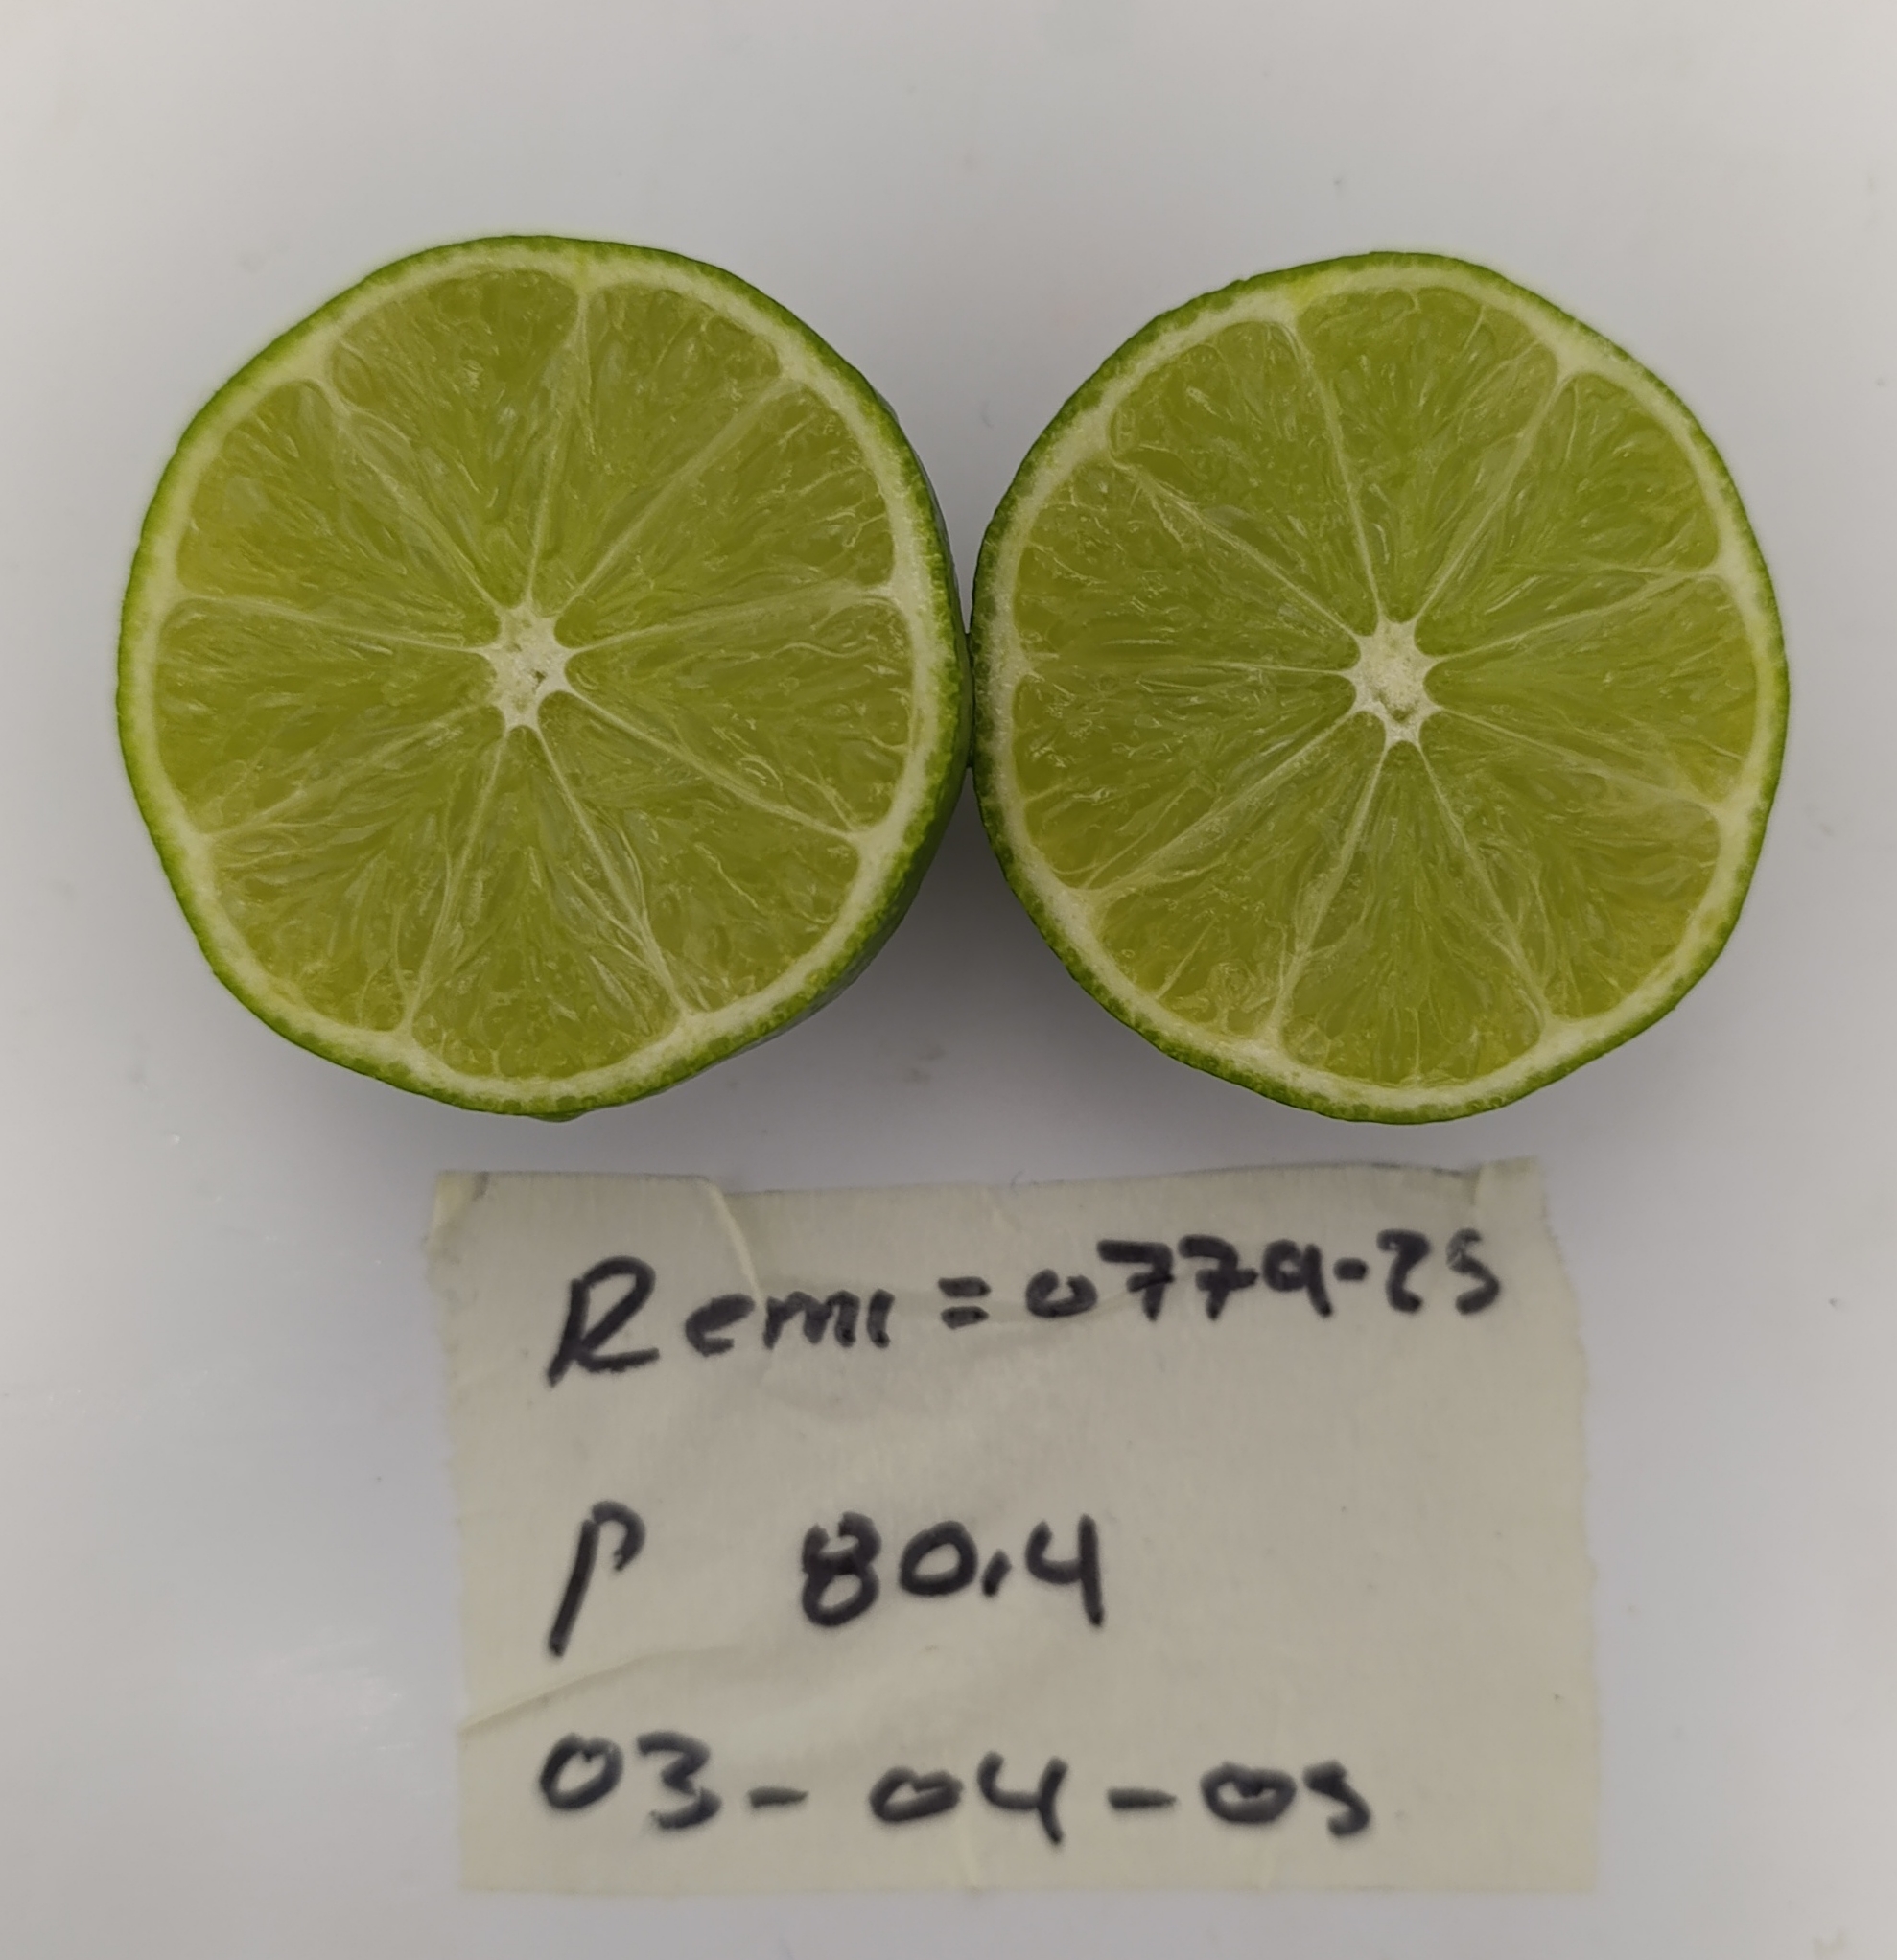 Remi = 0779-25
P 80.4
03-04-05